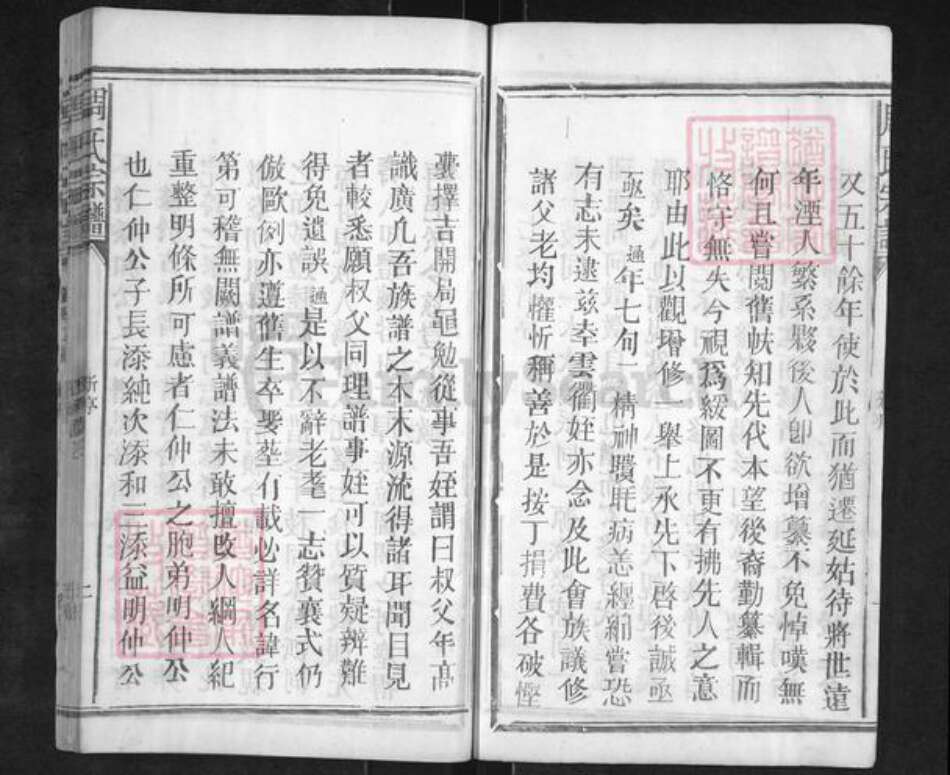 又五十餘年使於此而猶遷延姑待將世遠
年湮人繁系夥後人卽欲增纂不免悼嘆無
何且嘗閱舊帙知先代本望後裔勤纂輯而
恪守無失今視爲緩圖不更有拂先人之意
耶由此以觀增修一舉上承先下啓後誠亟
亟矣通年七旬一精神聵眊病恙纏綿嘗恐
有志未逮兹奉雲衢姪亦念及此會族議修
諸父老均懽忻稱善於是按丁捐費各破慳
囊擇吉開局黽勉從事吾姪謂曰叔父年髙
識廣凡吾族譜之本末源流得諸耳聞目見
者較悉願叔父同理譜事姪可以質疑辨難
得免遺誤通是以不辭老耄一志贊襄式仍
倣歐例亦遵舊生卒娶塟有載必詳名諱行
第可稽無闕譜義譜法未敢擅改人綱人紀
重整明條所可慮者仁仲公之胞弟明仲公
也仁仲公子長添純次添和三添益明仲公
周氏宗譜